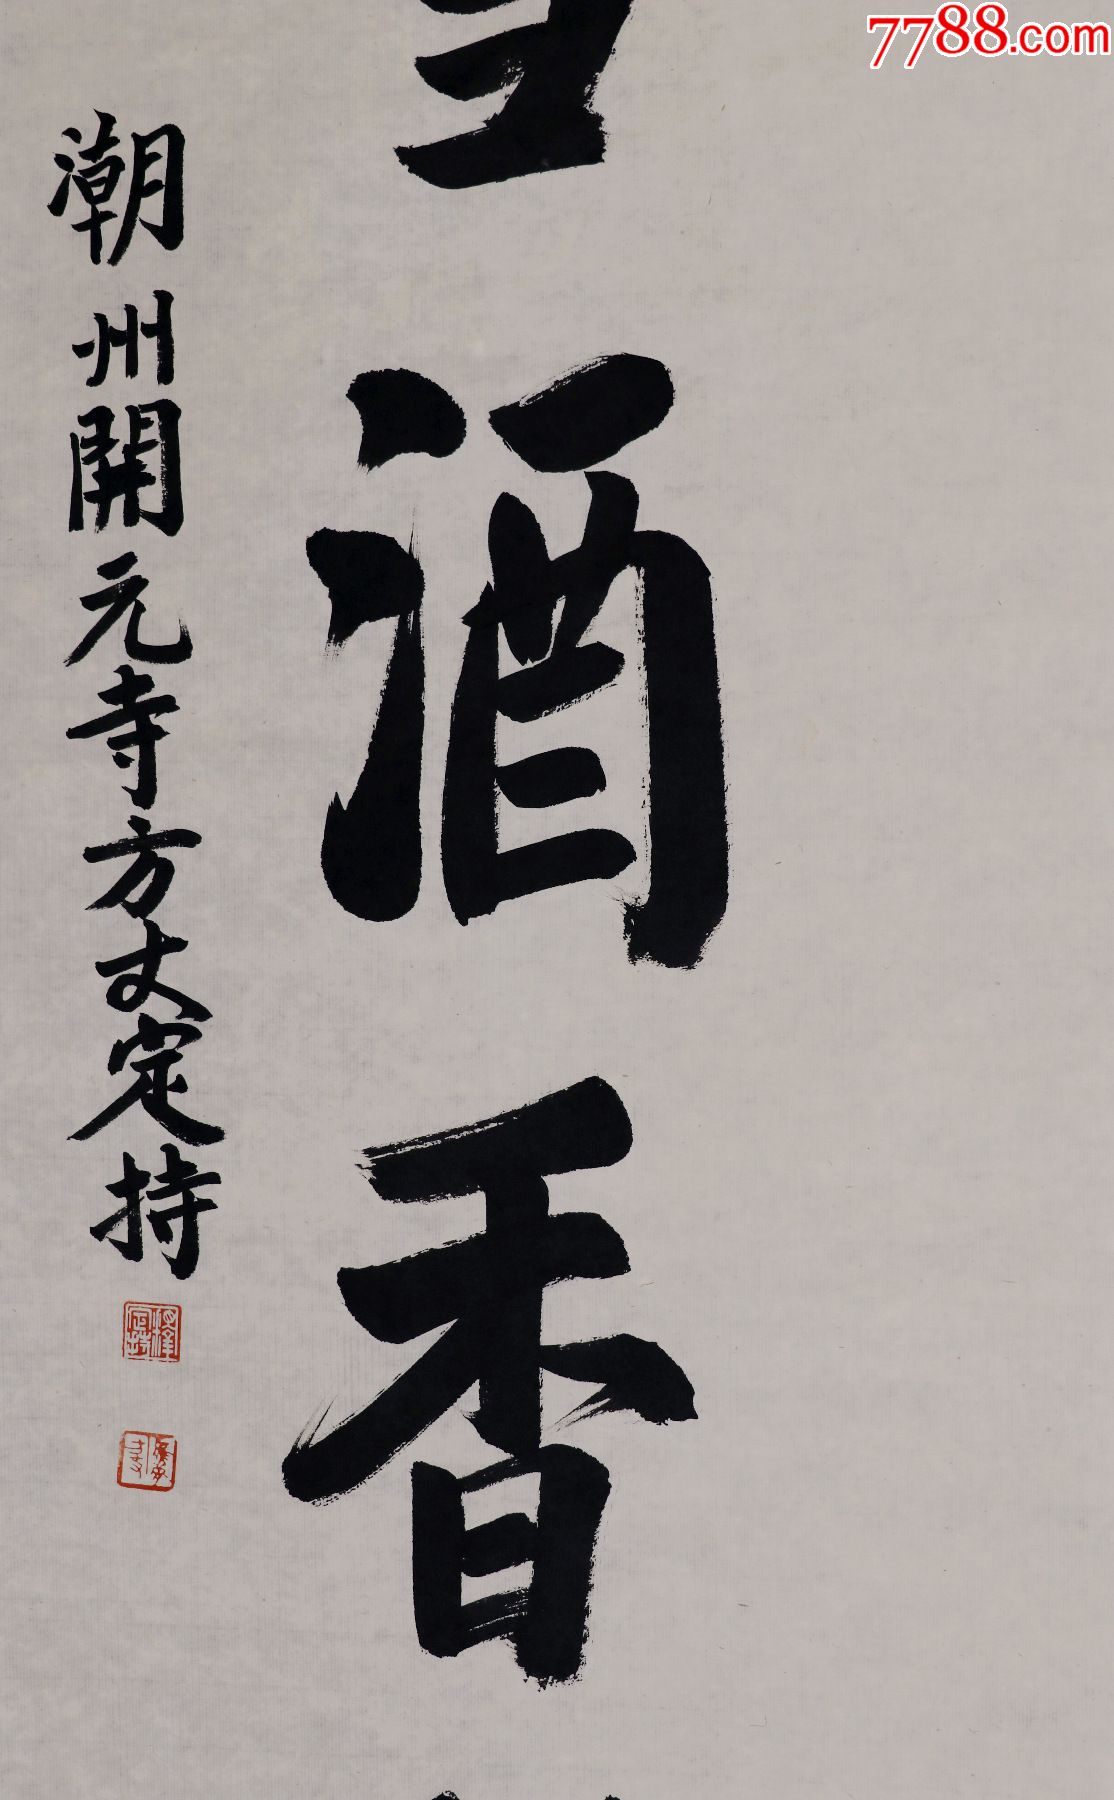 7788.com
酒香
潮州開元寺方丈定持